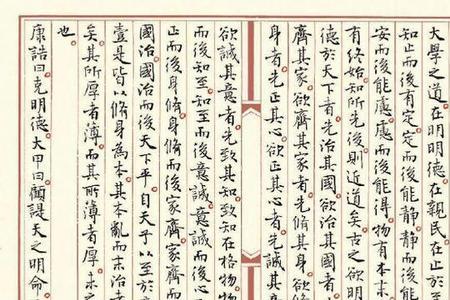 大學之道在明明德在親民在止於
知止而後有定定而後能靜靜而後能
安而後能慮慮而後能得物有本末
有終始知所先後則近道矣古之欲明
德於天下者先治其國欲治其國者
齊其家欲齊其家者先脩其身欲脩
身者先正其心欲正其心者先誠其意
欲誠其意者先致其知致知在格物物
而後知至知至而後意誠意誠而後心
正而後身脩身脩而後家齊家齊而
國治國治而後天下平自天子以至於
壹是皆以脩身為本其本亂而末治者
矣其所厚者薄而其所薄者厚未之
也
康誥曰克明德大甲曰顧諟天之明命